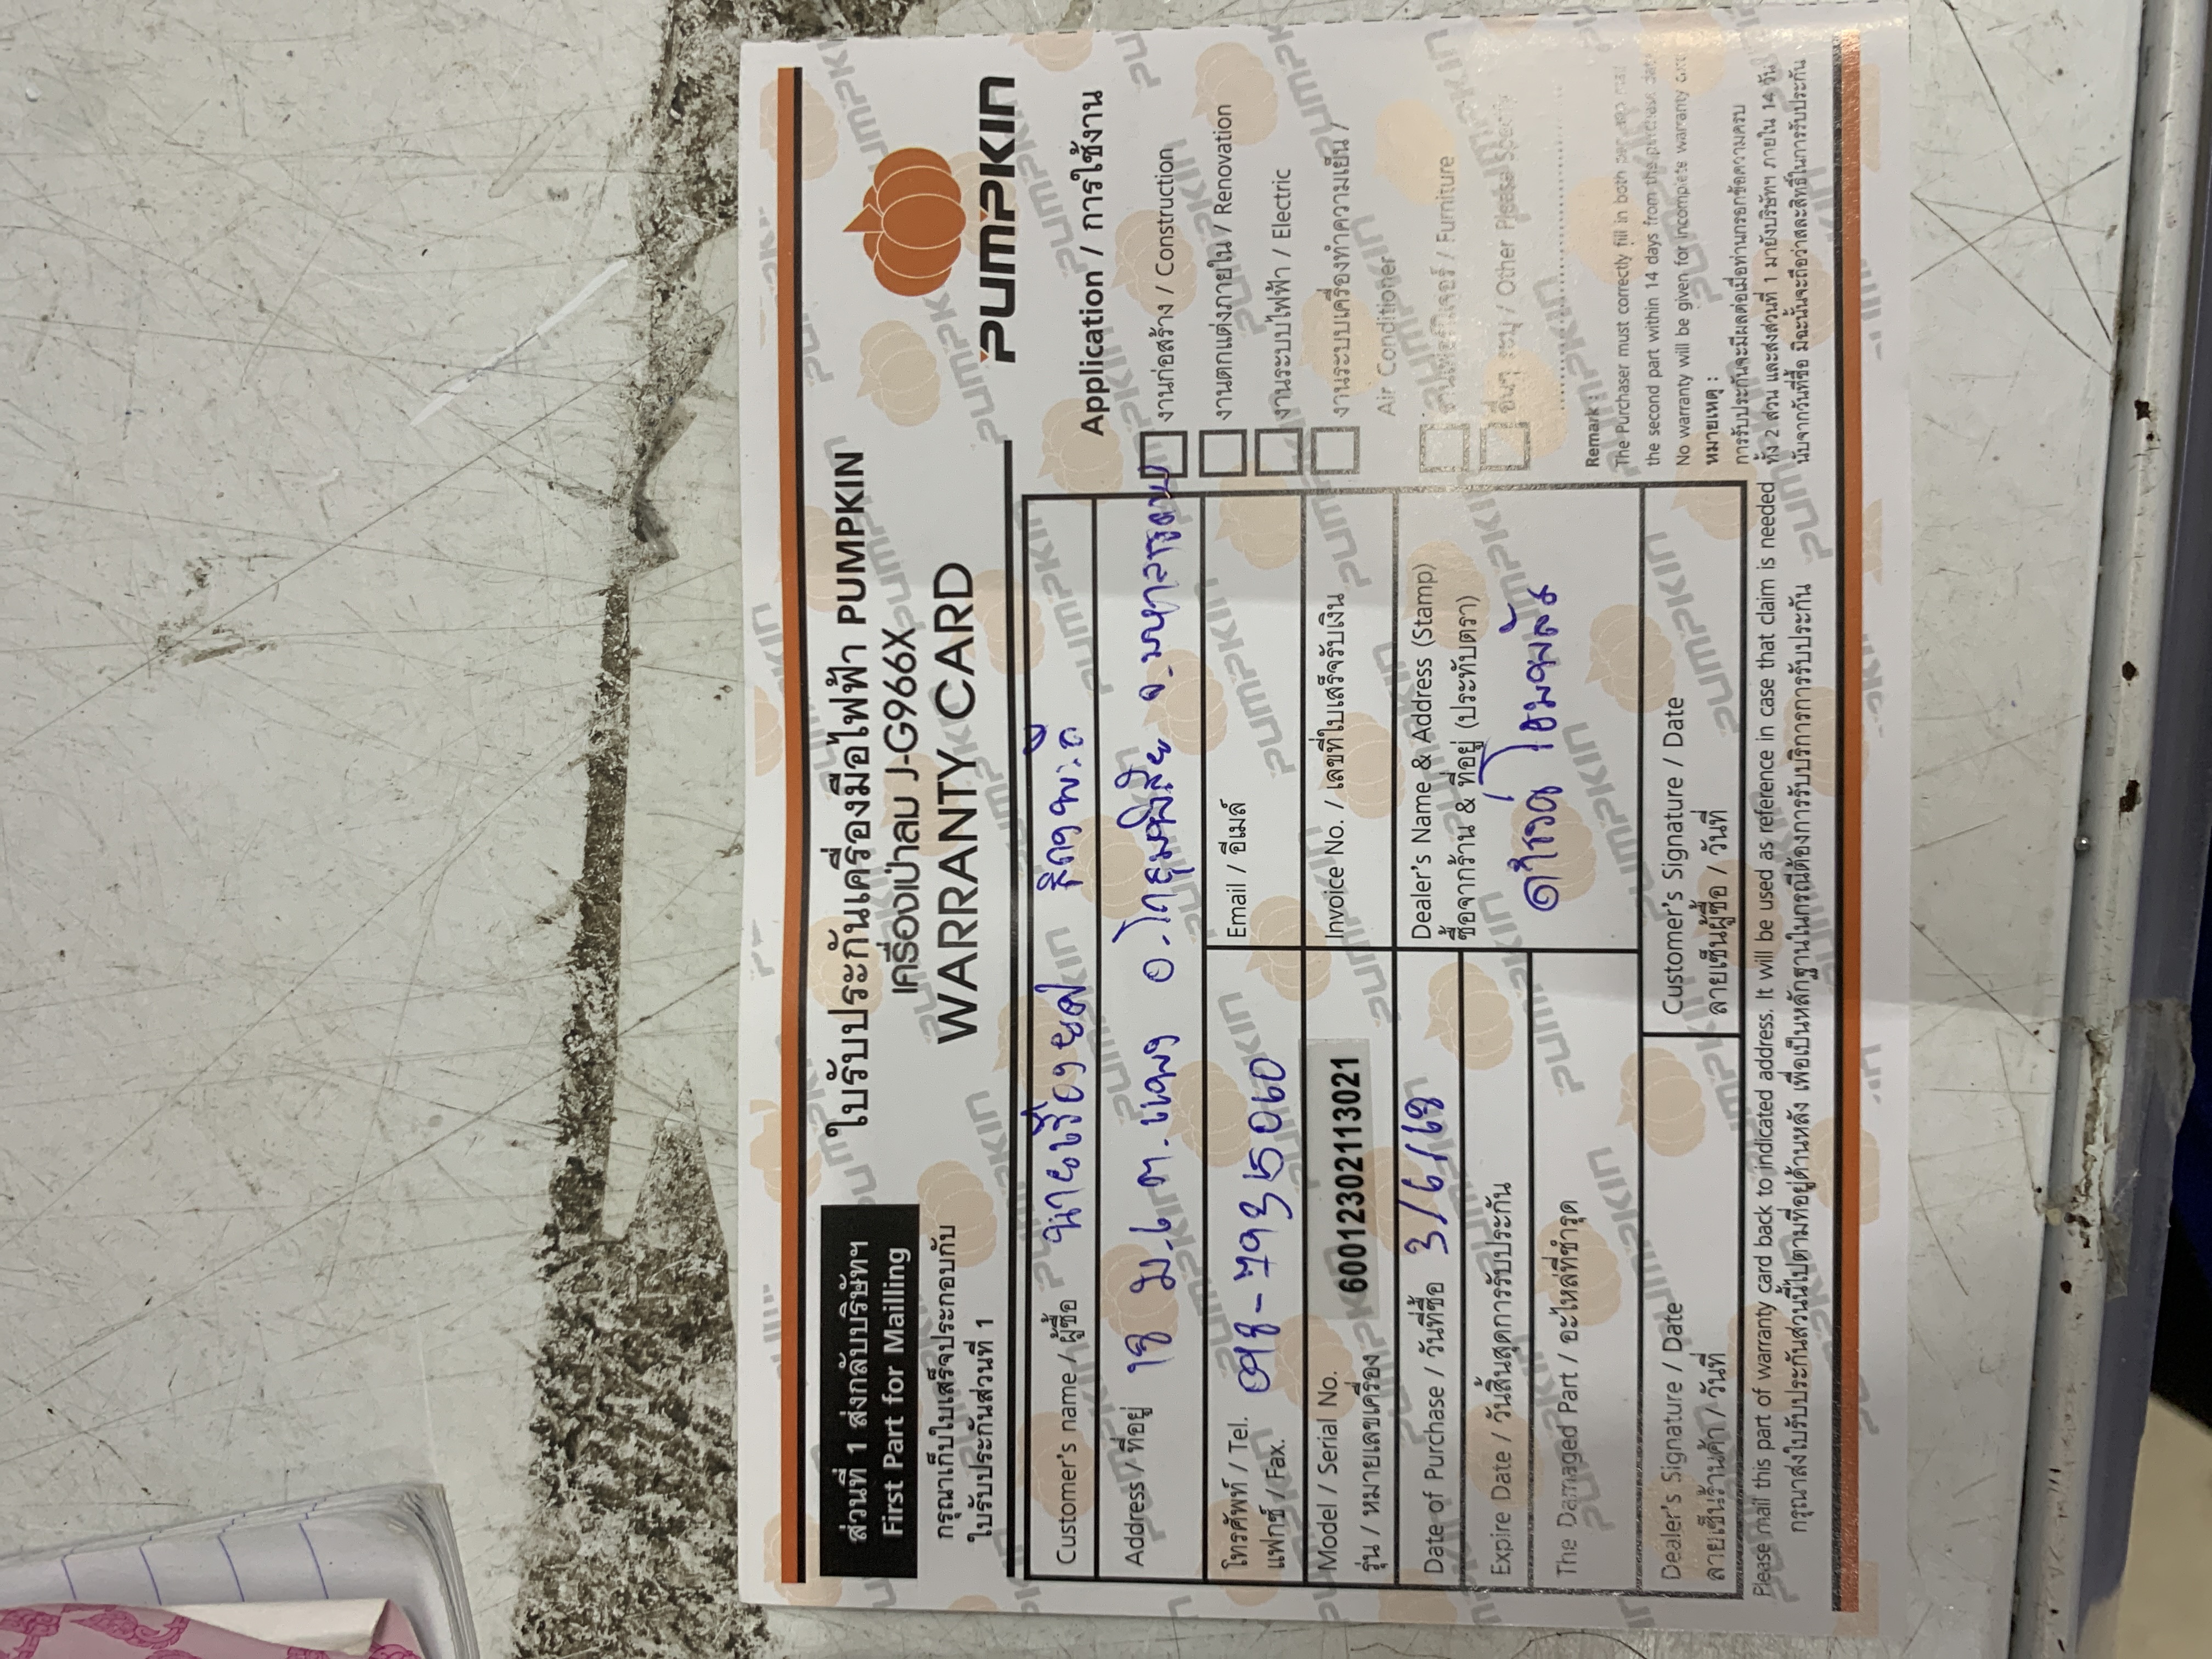 ส่วนที่ 1 ส่งกลับบริษัทฯ
First Part for Mailling
กรุณาเก็บใบเสร็จประกอบกับ
ใบรับประกันส่วนที่ 1
ใบรับประกันเครื่องมือไฟฟ้า PUMPKIN
เครื่องเป่าลม J-G966X
WARRANTY CARD
PUMPKIN
Customer's name / ผู้ซื้อ นายเรืองยศ
Address / ที่อยู่ 18 ม.6 ต.แพง อ.โกสุมพิสัย จ.มหาสารคาม
โทรศัพท์ / Tel. 098-7935060
แฟกซ์ / Fax.
Email / อีเมล์
Model / Serial No. 600123021113021
รุ่น / หมายเลขเครื่อง
Invoice No. / เลขที่ใบเสร็จรับเงิน
Date of Purchase / วันที่ซื้อ 3/6/68
Expire Date / วันสิ้นสุดการรับประกัน
The Damaged Part / อะไหล่ที่ชำรุด
Dealer's Name & Address (Stamp)
ซื้อจากร้าน & ที่อยู่ (ประทับตรา)
Dealer's Signature / Date
ลายเซ็นร้านค้า / วันที่
Customer's Signature / Date
ลายเซ็นผู้ซื้อ / วันที่
Application / การใช้งาน
งานก่อสร้าง / Construction
งานตกแต่งภายใน / Renovation
งานระบบไฟฟ้า / Electric
งานระบบเครื่องทำความเย็น /
Air Conditioner
งานเฟอร์นิเจอร์ / Furniture
อื่นๆ ระบุ / Other Please Specify
Remark :
The Purchaser must correctly fill in both part and mail
the second part within 14 days from the purchase date
No warranty will be given for incomplete warranty card
หมายเหตุ :
การรับประกันจะมีผลต่อเมื่อท่านกรอกข้อความครบ
ทั้ง 2 ส่วน และส่งส่วนที่ 1 มายังบริษัทฯ ภายใน 14 วัน
นับจากวันที่ซื้อ มิฉะนั้นจะถือว่าสละสิทธิ์ในการรับประกัน
Please mail this part of warranty card back to indicated address. It will be used as reference in case that claim is needed
กรุณาส่งใบรับประกันส่วนนี้ไปตามที่อยู่ด้านหลัง เพื่อเป็นหลักฐานในกรณีต้องการรับบริการการรับประกัน